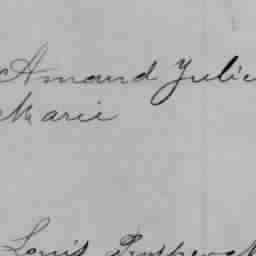 Amand Julie
Marie
Louis